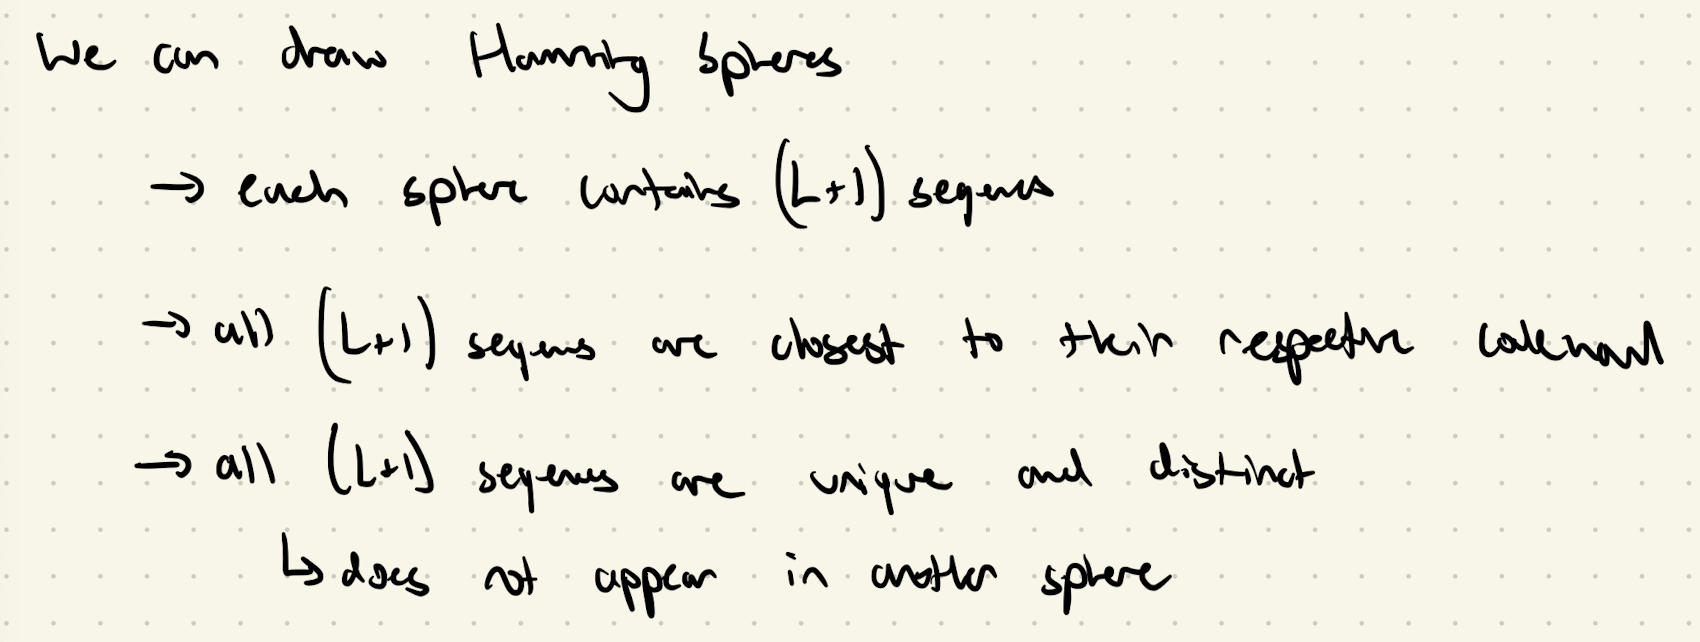 We can draw Hamming Spheres
→ each sphere contains (L+1) sequences
→ all (L+1) sequences are closest to their respective codeword
→ all (L+1) sequences are unique and distinct
↳ does not appear in another sphere